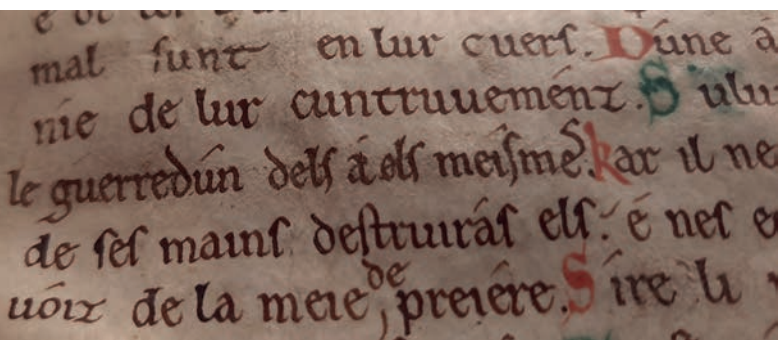 mal sunt en lur cuers. Dúne á
nie de lur cuntruuemént. S ulu
le guerredún dels á els meisme. kar il ne
de ses mains destruirás els: é nes e
uóiz de la meie de preiére. Sire li